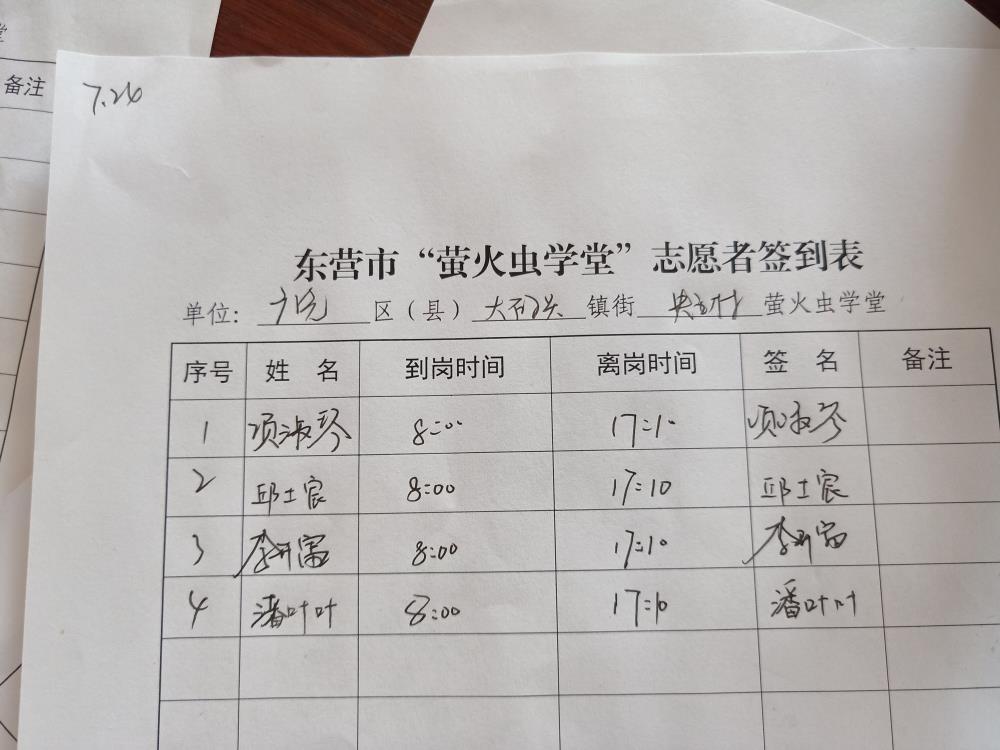 备注
7.26
东营市“萤火虫学堂”志愿者签到表
单位：广饶 区（县） 大码头 镇街 央上村 萤火虫学堂
序号 姓 名 到岗时间 离岗时间 签 名 备注
1 项淑琴 8:00 17:10 项淑琴
2 邱士宸 8:00 17:10 邱士宸
3 李开富 8:00 17:10 李开富
4 潘叶叶 8:00 17:10 潘叶叶